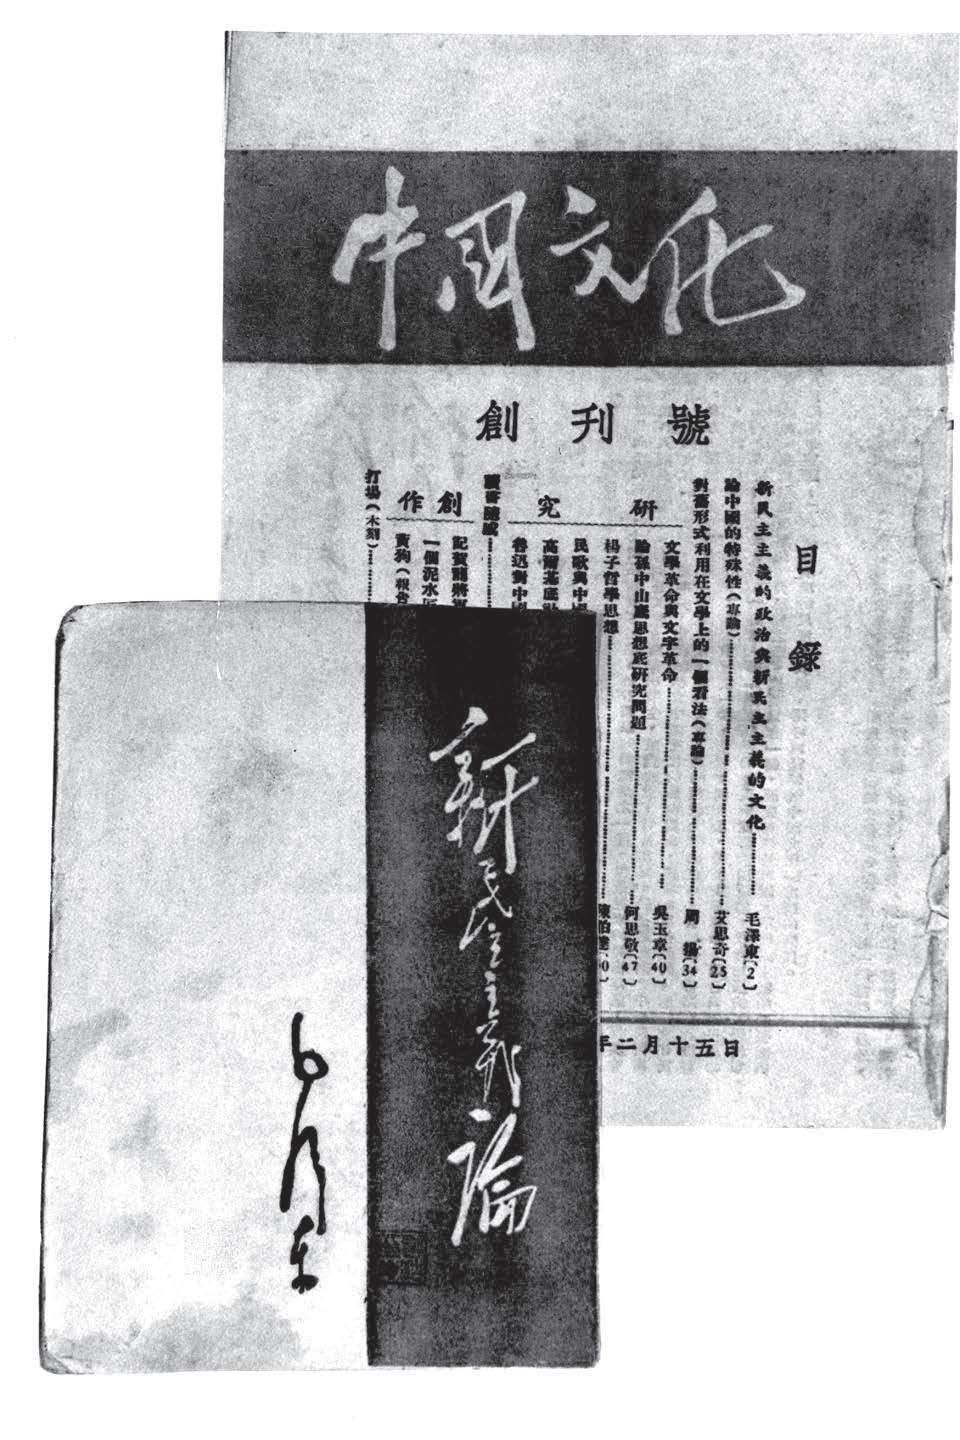 中國文化
創刊號
目錄
新民主主義的政治與新民主主義的文化……毛澤東〔2〕
論中國的特殊性(專論)……艾思奇〔25〕
對舊形式利用在文學上的一個看法(專論)……周揚〔34〕
研究
文學革命與文字革命……吳玉章〔40〕
論孫中山底思想底研究問題……何思敬〔47〕
楊子哲學思想……陳伯達
民歌與中
高爾基底
魯迅對中
讀書隨感……
創作
記賀龍將軍
一個泥水匠
黃狗(報告
打場(木刻)……
年二月十五日
新民主主義論
毛澤東